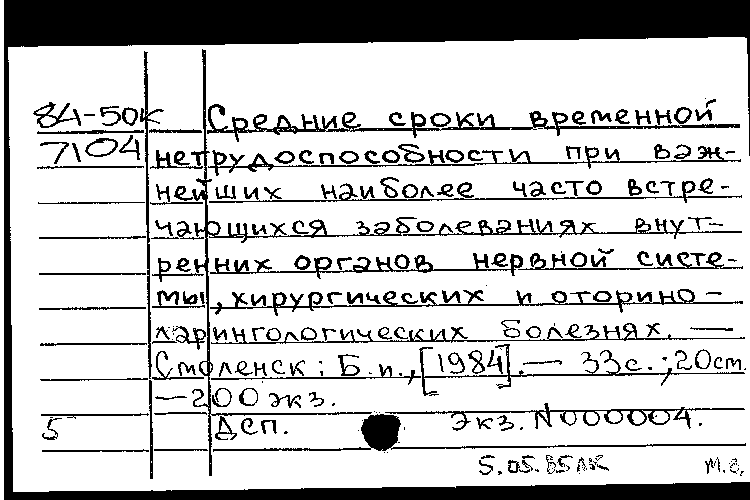 84-50к Средние сроки временной
7104 нетрудоспособности при важ-
нейших наиболее часто встре-
чающихся заболеваниях внут-
ренних органов нервной систе-
мы, хирургических и оторино-
ларингологических болезнях. —
Смоленск: Б.и., [1984]. — 33с.; 20см.
— 200 экз.
5 ДСП. Экз. N000004.
5.05.85 ЛК м.е.